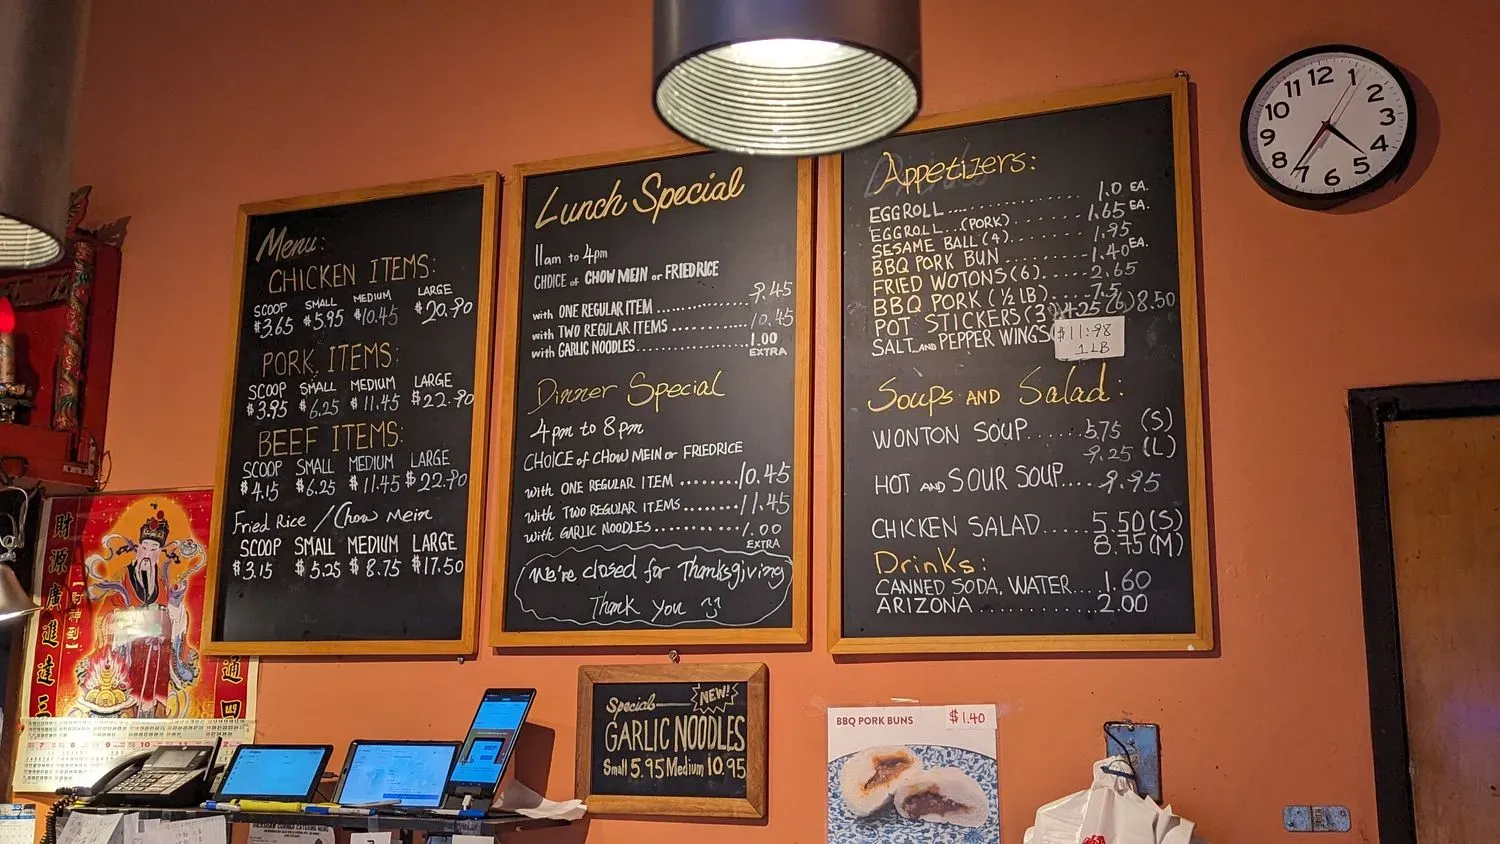 Menu:
CHICKEN ITEMS:
SCOOP SMALL MEDIUM LARGE
$3.65 $5.95 $10.45 $20.90
PORK ITEMS:
SCOOP SMALL MEDIUM LARGE
$3.95 $6.25 $11.45 $22.90
BEEF ITEMS:
SCOOP SMALL MEDIUM LARGE
$4.15 $6.25 $11.45 $22.90
Fried Rice / Chow Mein
SCOOP SMALL MEDIUM LARGE
$3.15 $5.25 $8.75 $17.50
Lunch Special
11am to 4pm
CHOICE of CHOW MEIN or FRIED RICE
with ONE REGULAR ITEM ............ 9.45
with TWO REGULAR ITEMS ........... 10.45
with GARLIC NOODLES ............... 1.00
EXTRA
Dinner Special
4pm to 8pm
CHOICE of CHOW MEIN or FRIEDRICE
with ONE REGULAR ITEM ........ 10.45
with TWO REGULAR ITEMS ........ 11.45
with GARLIC NOODLES ........... 1.00
EXTRA
We're closed for Thanksgiving
Thank you
Appetizers:
EGGROLL ............ 1.0 EA.
EGGROLL...(PORK) ....... 1.65 EA.
SESAME BALL (4) ......... 1.95
BBQ PORK BUN ........ 1.40 EA.
FRIED WOTONS (6) ...... 2.65
BBQ PORK (½ LB) .... 7.5
POT STICKERS (3) 4.25 (6) 8.50
SALT AND PEPPER WINGS $11.98
1 LB
Soups AND Salad:
WONTON SOUP ...... 5.75 (S)
9.25 (L)
HOT AND SOUR SOUP .... 9.95
CHICKEN SALAD ..... 5.50 (S)
8.75 (M)
Drinks:
CANNED SODA, WATER ... 1.60
ARIZONA ............ 2.00
12 1 2 3 4 5 6 7 8 9 10 11
Special NEW!
GARLIC NOODLES
Small 5.95 Medium 10.95
BBQ PORK BUNS $1.40
財源廣進達三
【財神到】
通四
7 8 9 10